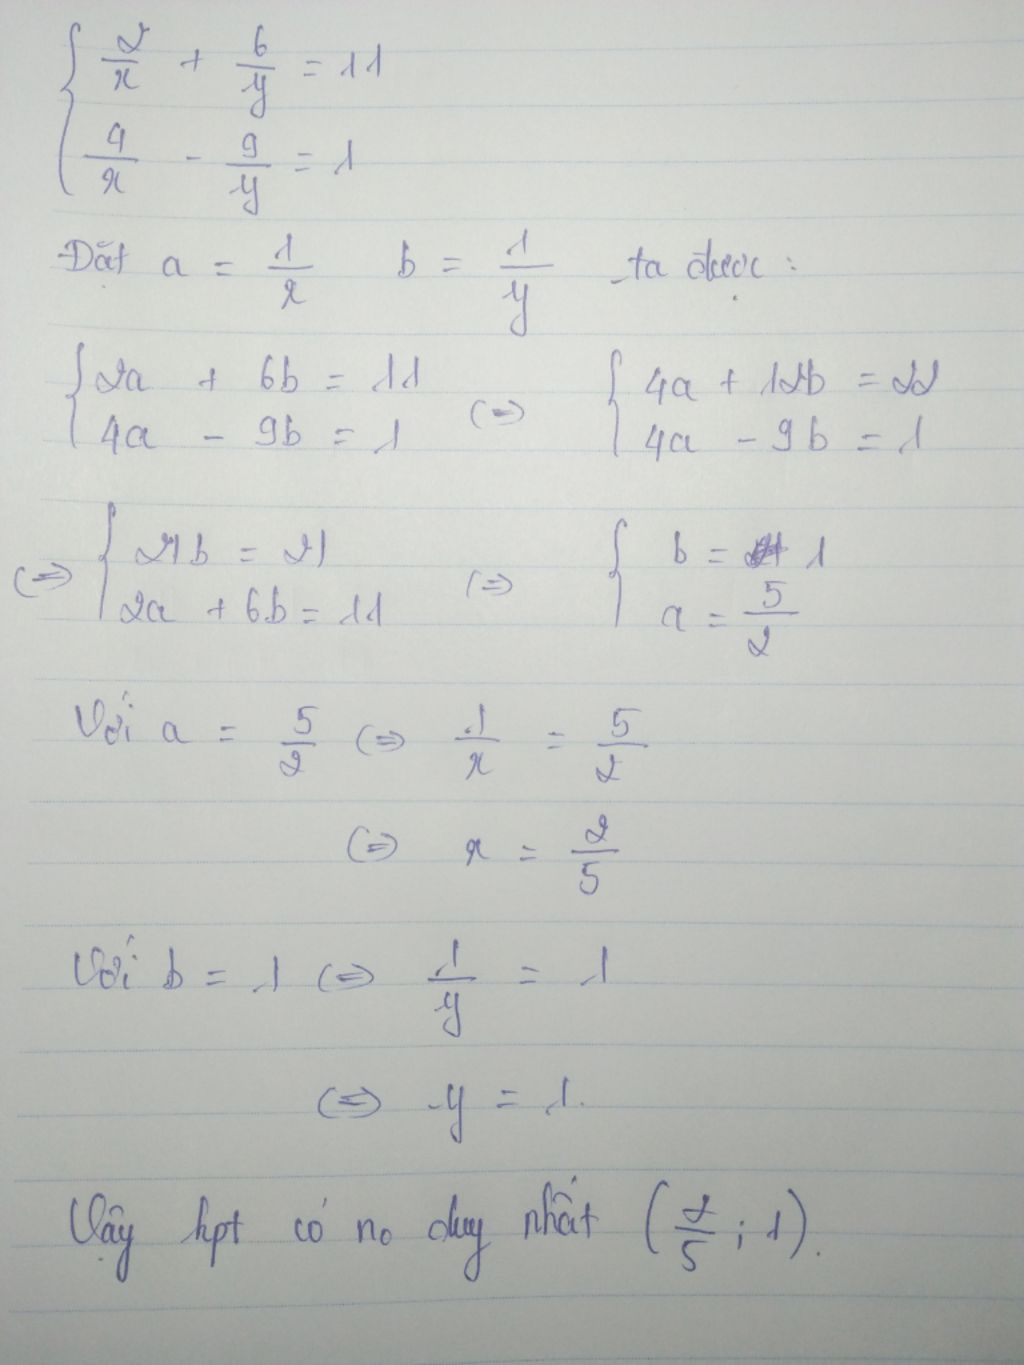 2/x + 6/y = 11
4/x - 9/y = 1
Đặt a = 1/x b = 1/y ta được :
2a + 6b = 11 (=) 4a + 12b = 22
4a - 9b = 1 4a - 9b = 1
(=) 21b = 21 (=) b = 1
2a + 6b = 11 a = 5/2
Với a = 5/2 (=) 1/x = 5/2
(=) x = 2/5
Với b = 1 (=) 1/y = 1
(=) y = 1.
Vậy hpt có no duy nhất (2/5 ; 1).